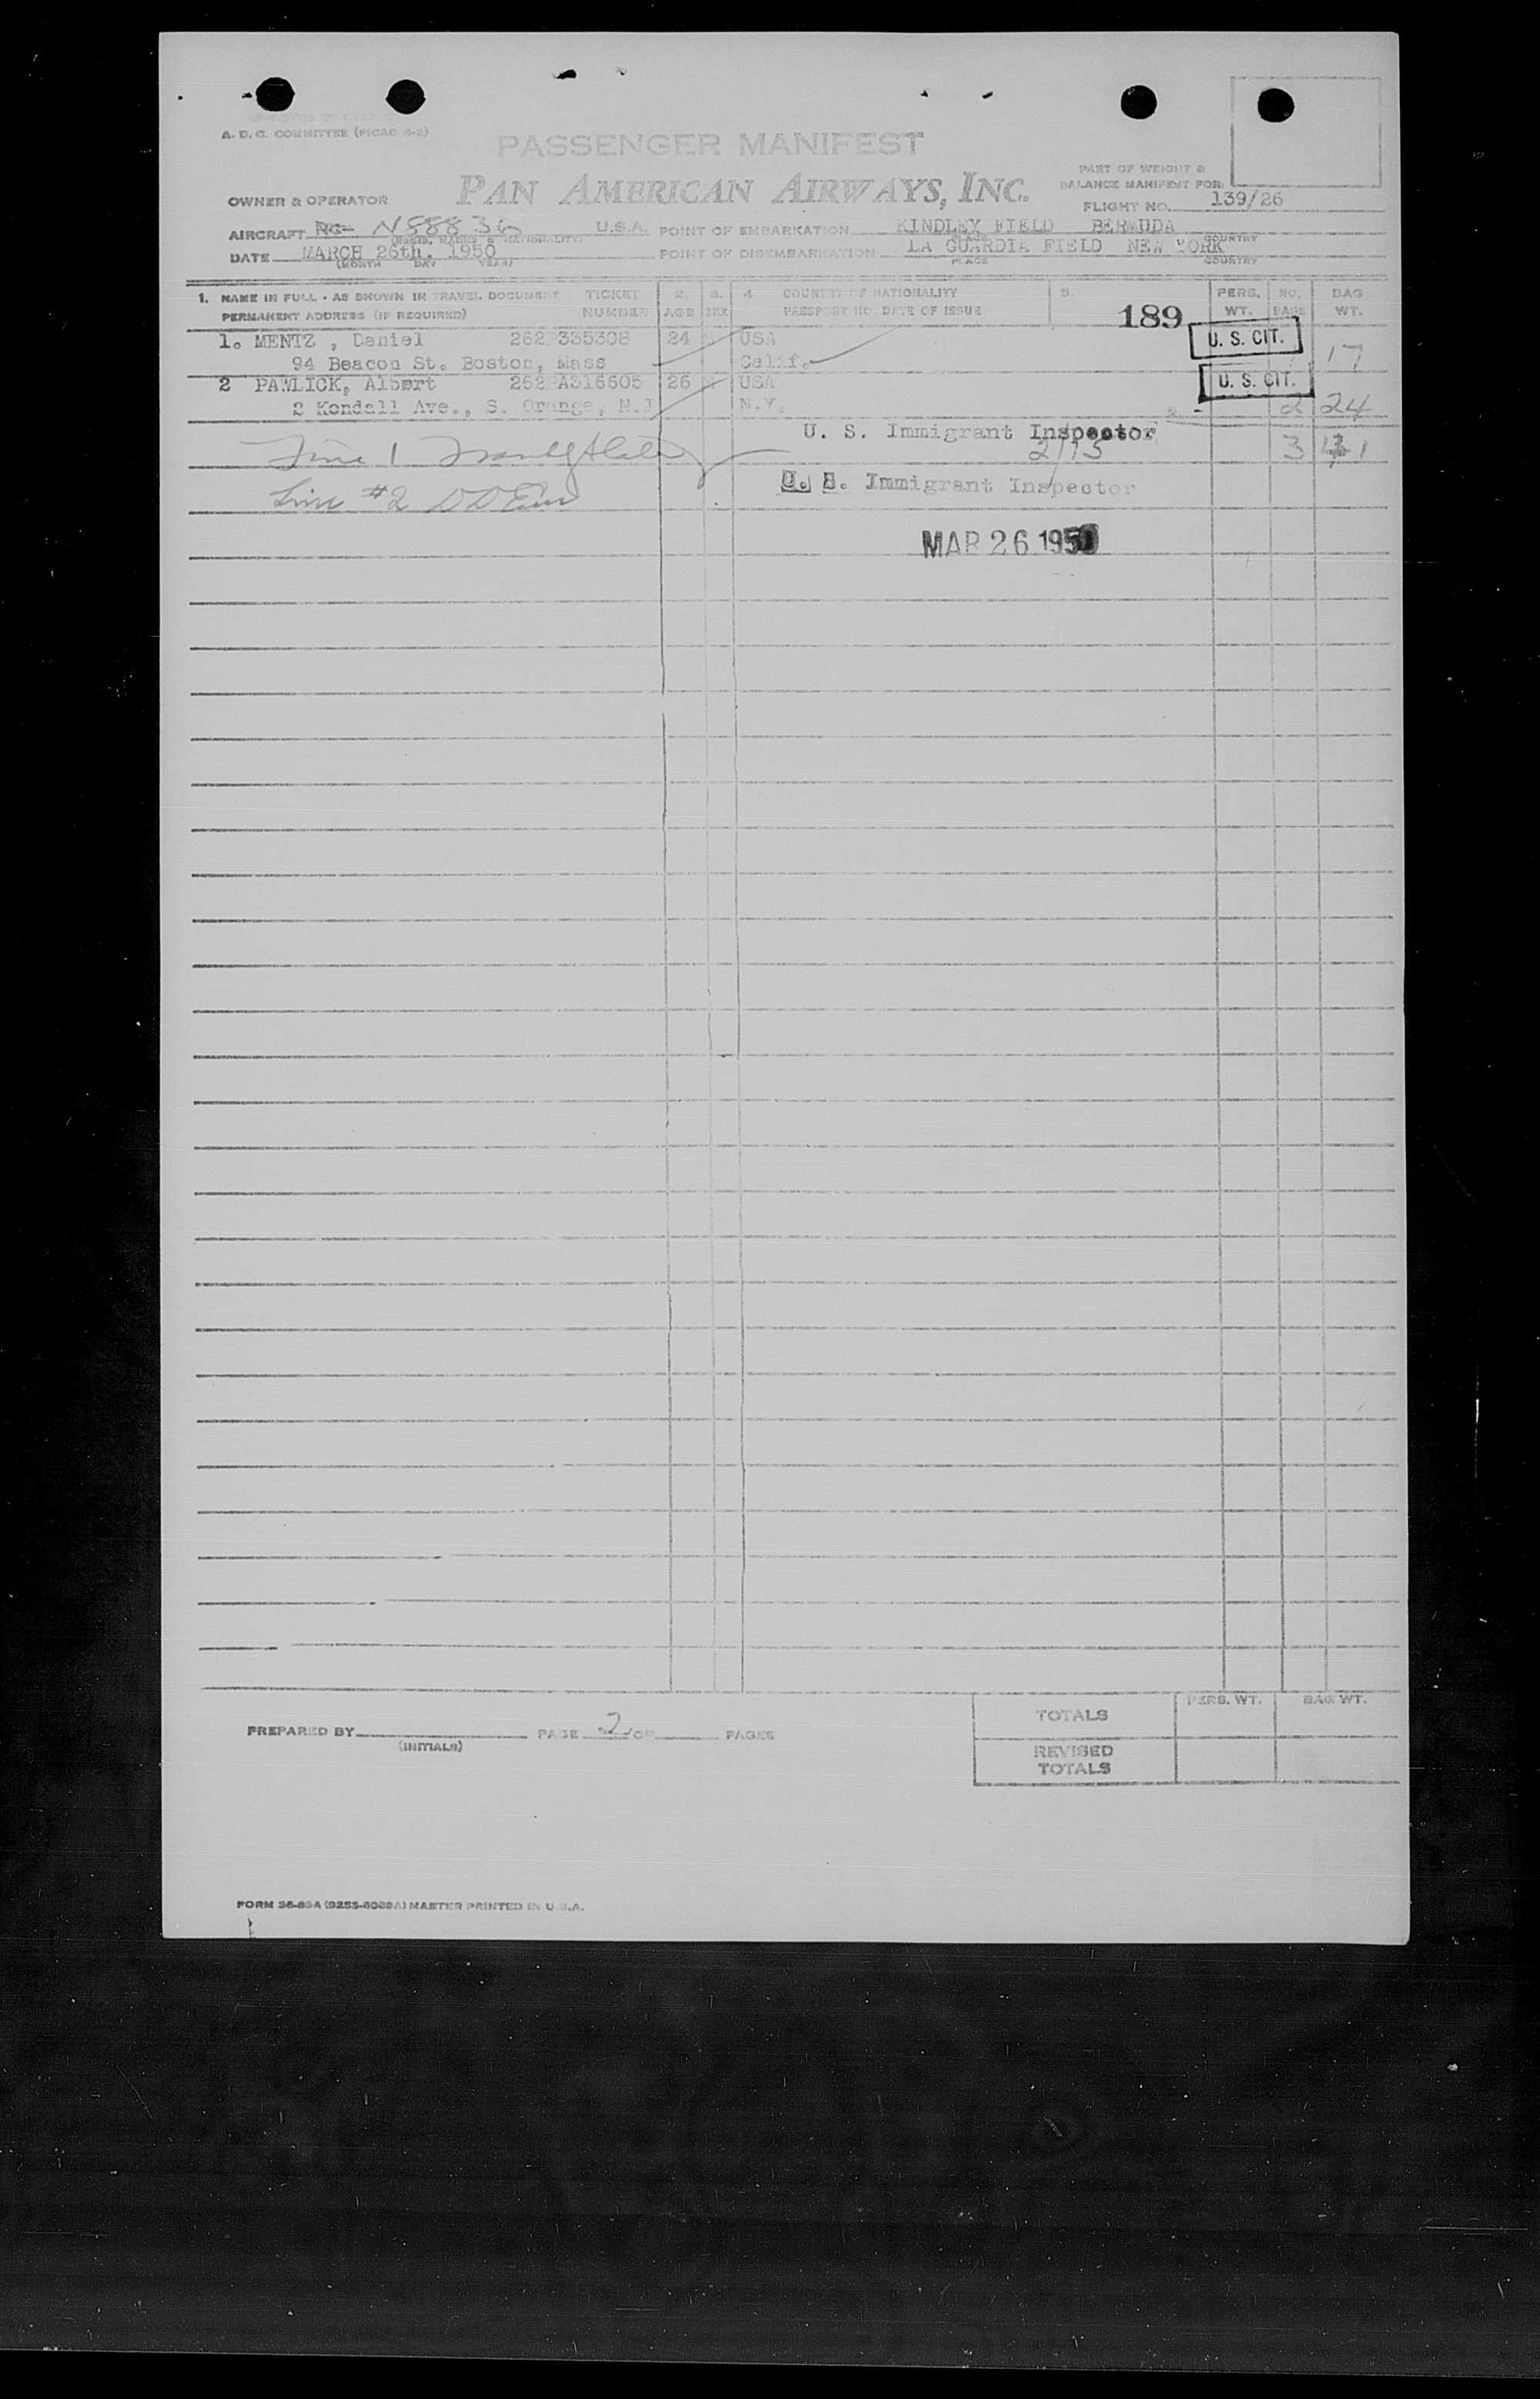 A. D. C. COMMITTEE (PICAO
PASSENGER MANIFEST
PART OF WEIGHT &
BALANCE MANIFEST FOR:
OWNER & OPERATOR PAN AMERICAN AIRWAYS, INC.
FLIGHT NO. 139/26
AIRCRAFT N88836 U.S.A. POINT OF EMBARKATION KINDLEY FIELD BERMUDA
(REGIS. MARKS & NATIONALITY) PLACE COUNTRY
DATE MARCH 26th. 1950 POINT OF DISEMBARKATION LA GUARDIA FIELD NEW YORK
(MONTH DAY YEAR) PLACE COUNTRY
1. NAME IN FULL - AS SHOWN IN TRAVEL DOCUMENT TICKET 2. 3. 4. COUNTRY OF NATIONALITY 5. PERS. NO. BAG
PERMANENT ADDRESS (IF REQUIRED) NUMBER AGE SEX PASSPORT NO. DATE OF ISSUE 189 WT. BAGS WT.
1. MENTZ , Daniel 262 335308 24 USA U. S. CIT.
94 Beacon St. Boston, Mass Calif. 17
2 PAWLICK, Albert 262PA316605 26 USA U. S. CIT.
2 Kendall Ave., S. Orange, N.J N.Y. 2 24
U. S. Immigrant Inspector
Line 1 2115 3 41
U. S. Immigrant Inspector
Line #2
MAR 26 1950
PERS. WT. BAG WT.
TOTALS
PREPARED BY PAGE 2 OF PAGES
(INITIALS)
REVISED
TOTALS
FORM 36-89A MASTER PRINTED IN U.S.A.